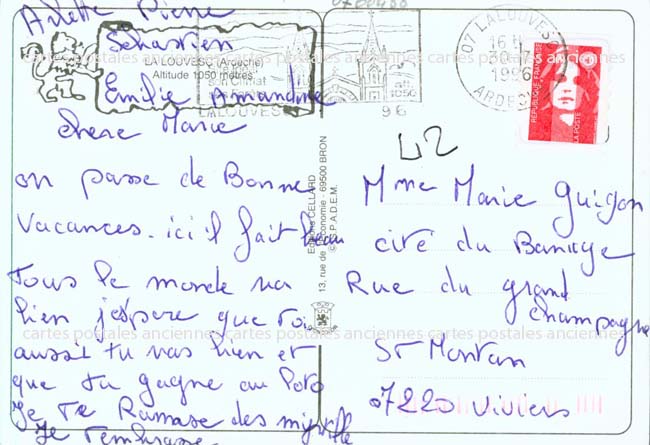 Arlette Pierre
Sébastien
LALOUVESC (Ardèche)
Altitude 1050 mètres
Emilie Amandine
chere Marie
on passe de Bonne
Vacances. ici il fait beau
Tous le monde va
bien j'espere que toi
aussi tu vas bien et
que tu gagne au Loto
Je Te Ramase des myrtille
Je t'embrasse
LALOUVESC
96
07 LALOUVESC
16 H
30-7
1996
ARDECHE
REPUBLIQUE FRANÇAISE
LA POSTE
42
Mme Marie Guigon
cité du Barrage
Rue du grand
champagne
St Montan
07220 Viviers
Editions CELLARD
13, rue de l'Economie - 69500 BRON
© S.P.A.D.E.M.
cartes postales anciennes cartes postales anciennes cartes postales anciennes
cartes postales anciennes cartes postales anciennes cartes postales anciennes